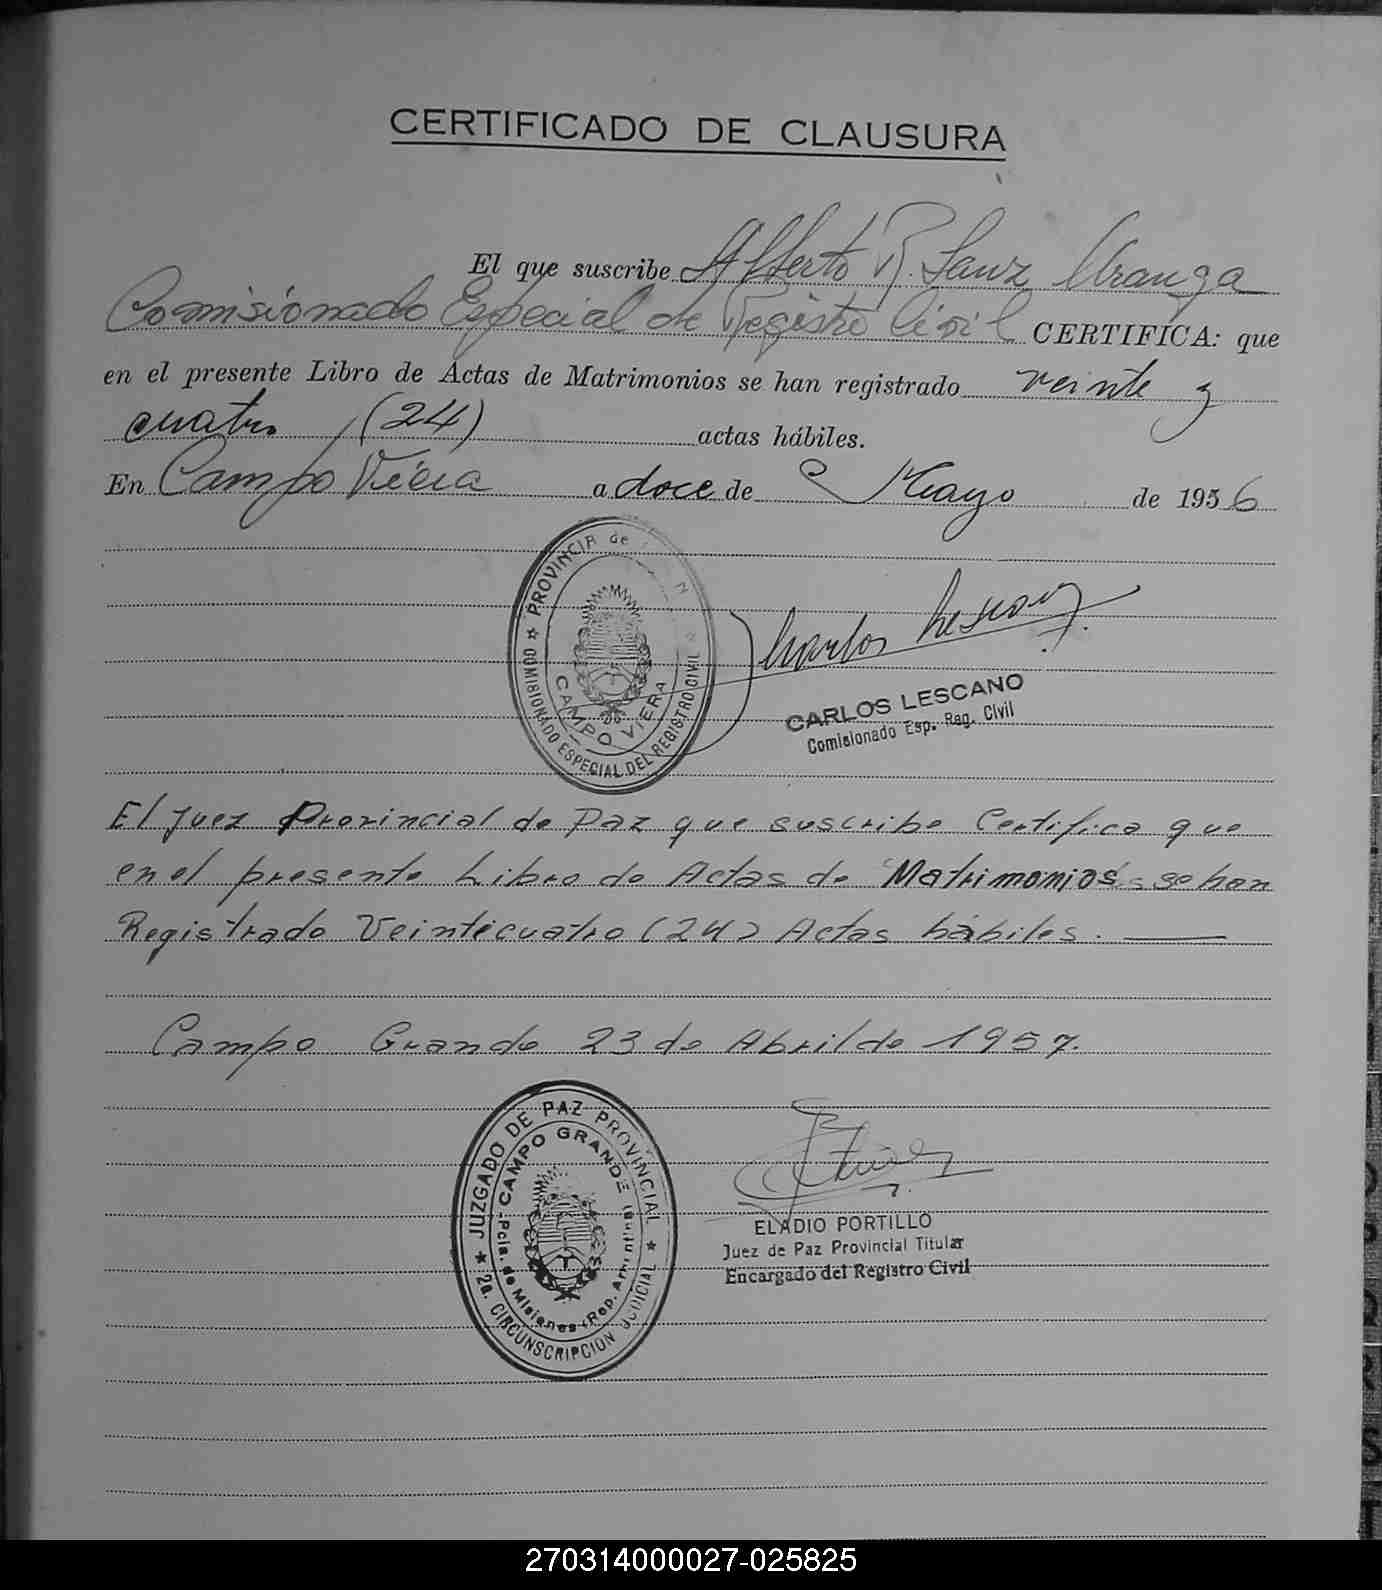 CERTIFICADO DE CLAUSURA
El que suscribe Alberto R. Sanz Uranga
Comisionado Especial de Registro Civil CERTIFICA: que
en el presente Libro de Actas de Matrimonios se han registrado veinte y
cuatro (24) actas hábiles.
En Campo Viera a doce de Mayo de 1956
PROVINCIA de
COMISIONADO ESPECIAL DEL REGISTRO CIVIL
CAMPO VIERA
Carlos Lescano
CARLOS LESCANO
Comisionado Esp. Reg. Civil
El Juez Provincial de Paz que suscribe Certifica que
en el presente Libro de Actas de Matrimonios se han
Registrado Veinticuatro (24) Actas hábiles.
Campo Grande 23 de Abril de 1957.
JUZGADO DE PAZ PROVINCIAL
2a. CIRCUNSCRIPCION JUDICIAL
CAMPO GRANDE
Pcia. de Misiones (Rep. Argentina)
ELADIO PORTILLO
Juez de Paz Provincial Titular
Encargado del Registro Civil
270314000027-025825